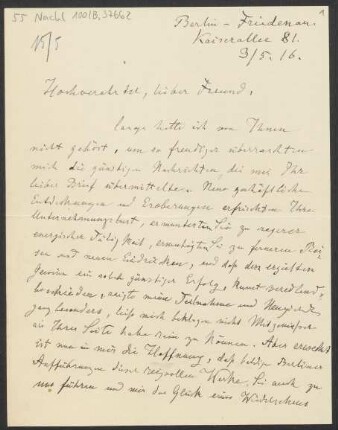 55 Nachl 100/B,
15/5
Berlin – Friedenau.
Kaiserallee 81.
3/5. 16.
Hochverehrter, lieber Freund,
lange hatte ich von Ihnen
nicht gehört, um so freudiger überraschten
mich die günstigen Nachrichten, die mir Ihr
lieber Brief übermittelte. Neue
Entdeckungen und Eroberungen erfrischten Ihre
Unternehmungslust, ermunterten Sie zu regerer
energischer Tätigkeit, ermutigten Sie zu
und neuen Eindrücken, und daß den erzielten
ein solch günstiger Erfolg
beschieden, meine Teilnahme und
ganz besonders, ließ mich beklagen nicht
an Ihrer Seite habe sein zu können. Aber erweckt
ist nun in mir die Hoffnung, daß baldige Berliner
Aufführungen dieser Werke Sie auch zu
uns führen und mir das Glück eines Wiedersehens